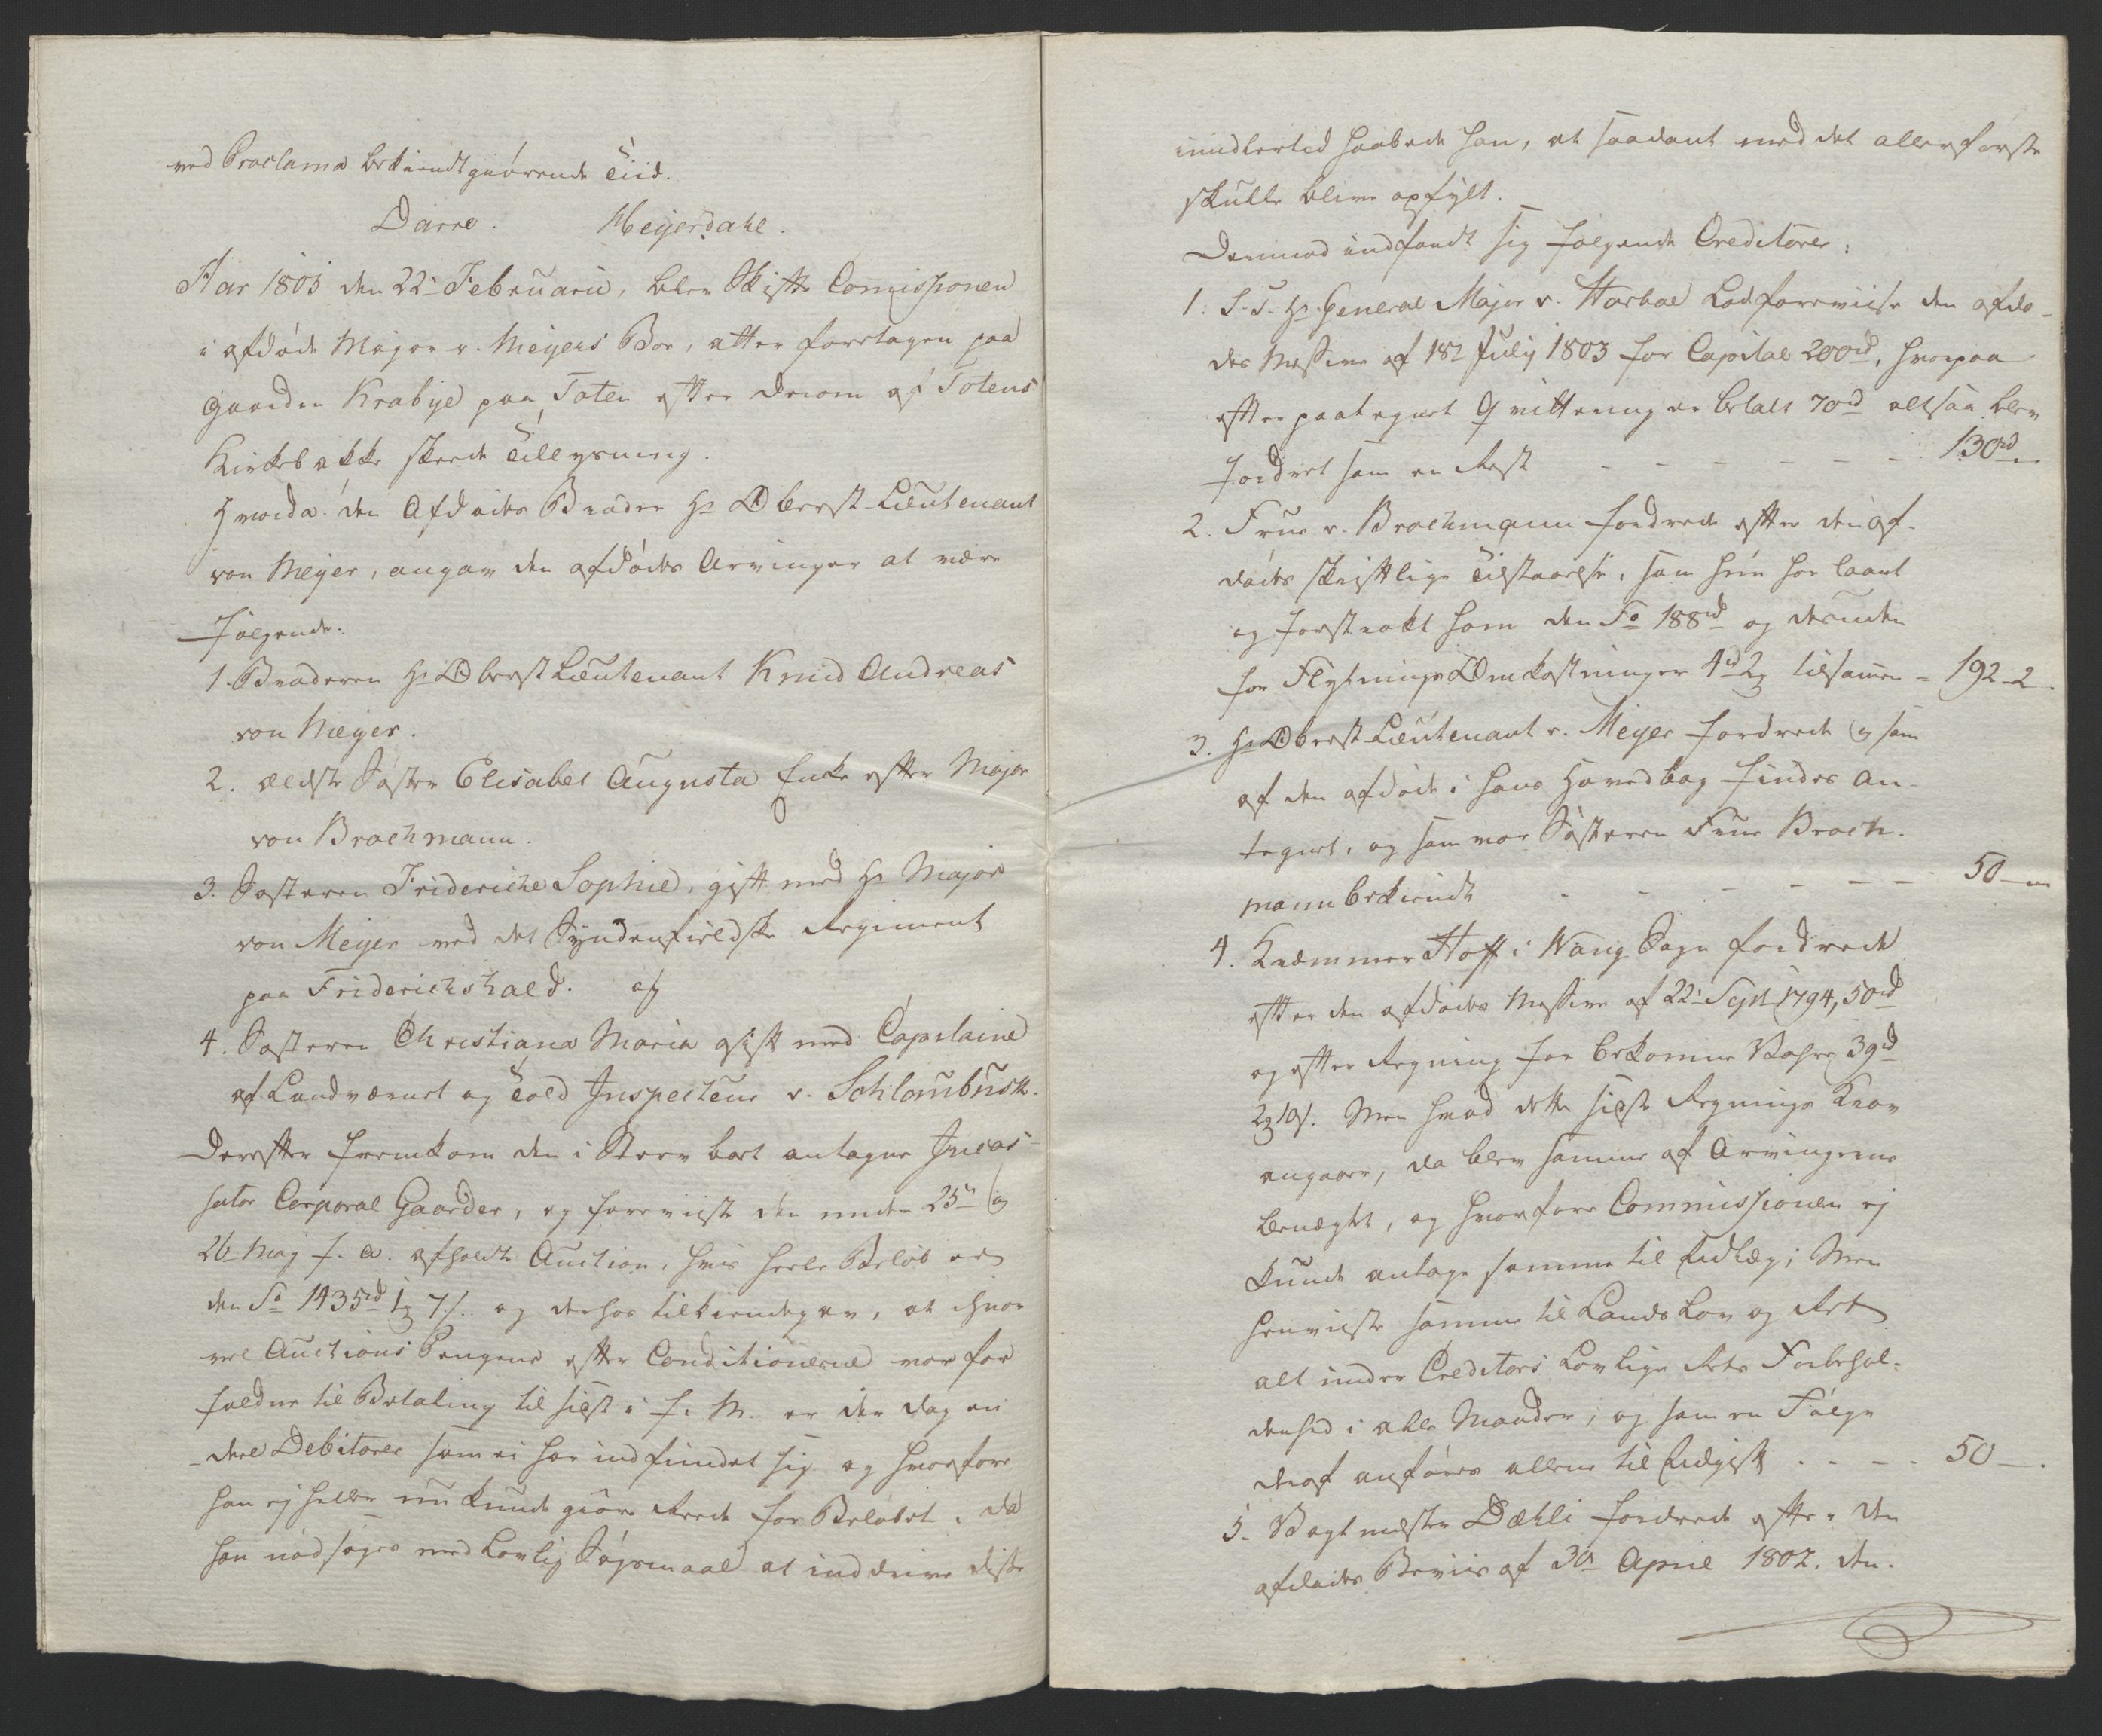 ved Proclama bekiendtgiörende Tiid.
Darre. Meyerdahl.
Aar 1805 den 22de Februarii, blev Skifte Comissionen
i afdøde Major v. Meyers Boe, atter foretagen paa
Gaarden Krabye paa Toten efter derom af Totens
Kirkebakke skeede Tillysning.
Hvorda den Afdødes Broder Hr Oberst-Lieutenant
von Meyer, angav den afdødes Arvinger at være
følgende:
1. Broderen Hr Oberst Lieutenant Knud Andreas
von Meyer.
2. ældste Søster Elisabet Augusta Enke efter Major
von Brochmann.
3. Søsteren Friderichе Sophie, gift med Hr Major
von Meyer ved det Syndenfieldske Regiment
paa Friderichshald. og
4. Søsteren Christiana Maria gift med Capitaine
af Landværnet og Told Inspecteur v. Schlambusch.
Derefter fremkom den i Sterv boet antagne Incas-
sator Corporal Gaarder, og foreviiste den under 25de og
26 May f. a. afholdte Auction, hvis heele Beløb er
den Sa 1435rd 1 7 s. og derhos tilkiendegav, at hvor
vel Auctions Pengene efter Conditionerne var for
faldne til Betaling til sidst i f. M. er der dog en
deel Debitorer som ei har indfundet sig og hvorfore
han ej heller nu kunde giøre Rede for Beløbet, da
han nødsages med Lovlig Søgsmaal at inddrive disse
imidlertid haabede han, at saadant med det allerførste
skulle blive opfylt.
Dernæst indfandt sig følgende Creditorer:
1. S. T. Hr General Major v. Harboe Lod foreviise den afdø-
des Missive af 18de July 1803 for Capital 200rd, hvorpaa
efter paategnet Qvittering er betalt 70rd altsaa blev
fordret som en Rest - - - - - - 130rd
2. Frue v. Brochmann fordrede efter den af-
dødes skriftlige Tilstaaelse, som hun har laant
og forstrakt ham den Sa 188rd og desuden
for Flytnings Omkostninger 4rd 2 tilsamen - 192-2.
3. Hr Oberst Lieutenant v. Meyer fordrede og som
af den afdøde i hans Hovedbog findes an-
tegnet, og som var Søsteren Frue Broch-
mann bekiendt - - - - - - 50 -
4. Kræmmer Hoff i Wang Sogn fordrede
efter den afdødes Missive af 22de Sept 1794, 50rd
og efter Regning for bekomne Vahre 39rd
2 10s. Men hvad dette sidste Regnings Krav
angaaer, da blev samme af Arvingerne
benægtet, og hvorfore Commissionen ej
kunde antage samme til Udlæg; Men
henviiste samme til Lands Lov og Ret
alt under Creditors Lovlige Rets Forbehol-
denhed i alle Maader; og som en Følge
deraf anføres allene til Udgift . - - . 50 - .
5. Vagtmester Dæhli fordrede efter den
afdødes Beviis af 30 April 1802. den.